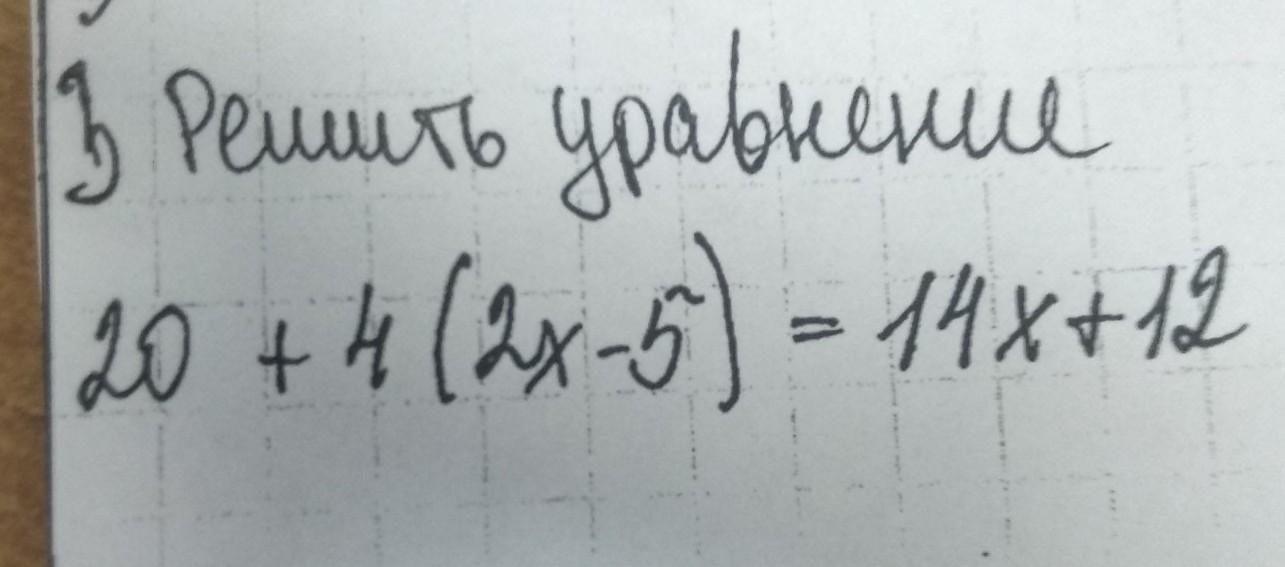 3) Решить уравнение
20 + 4 (2x - 5) = 14x + 12